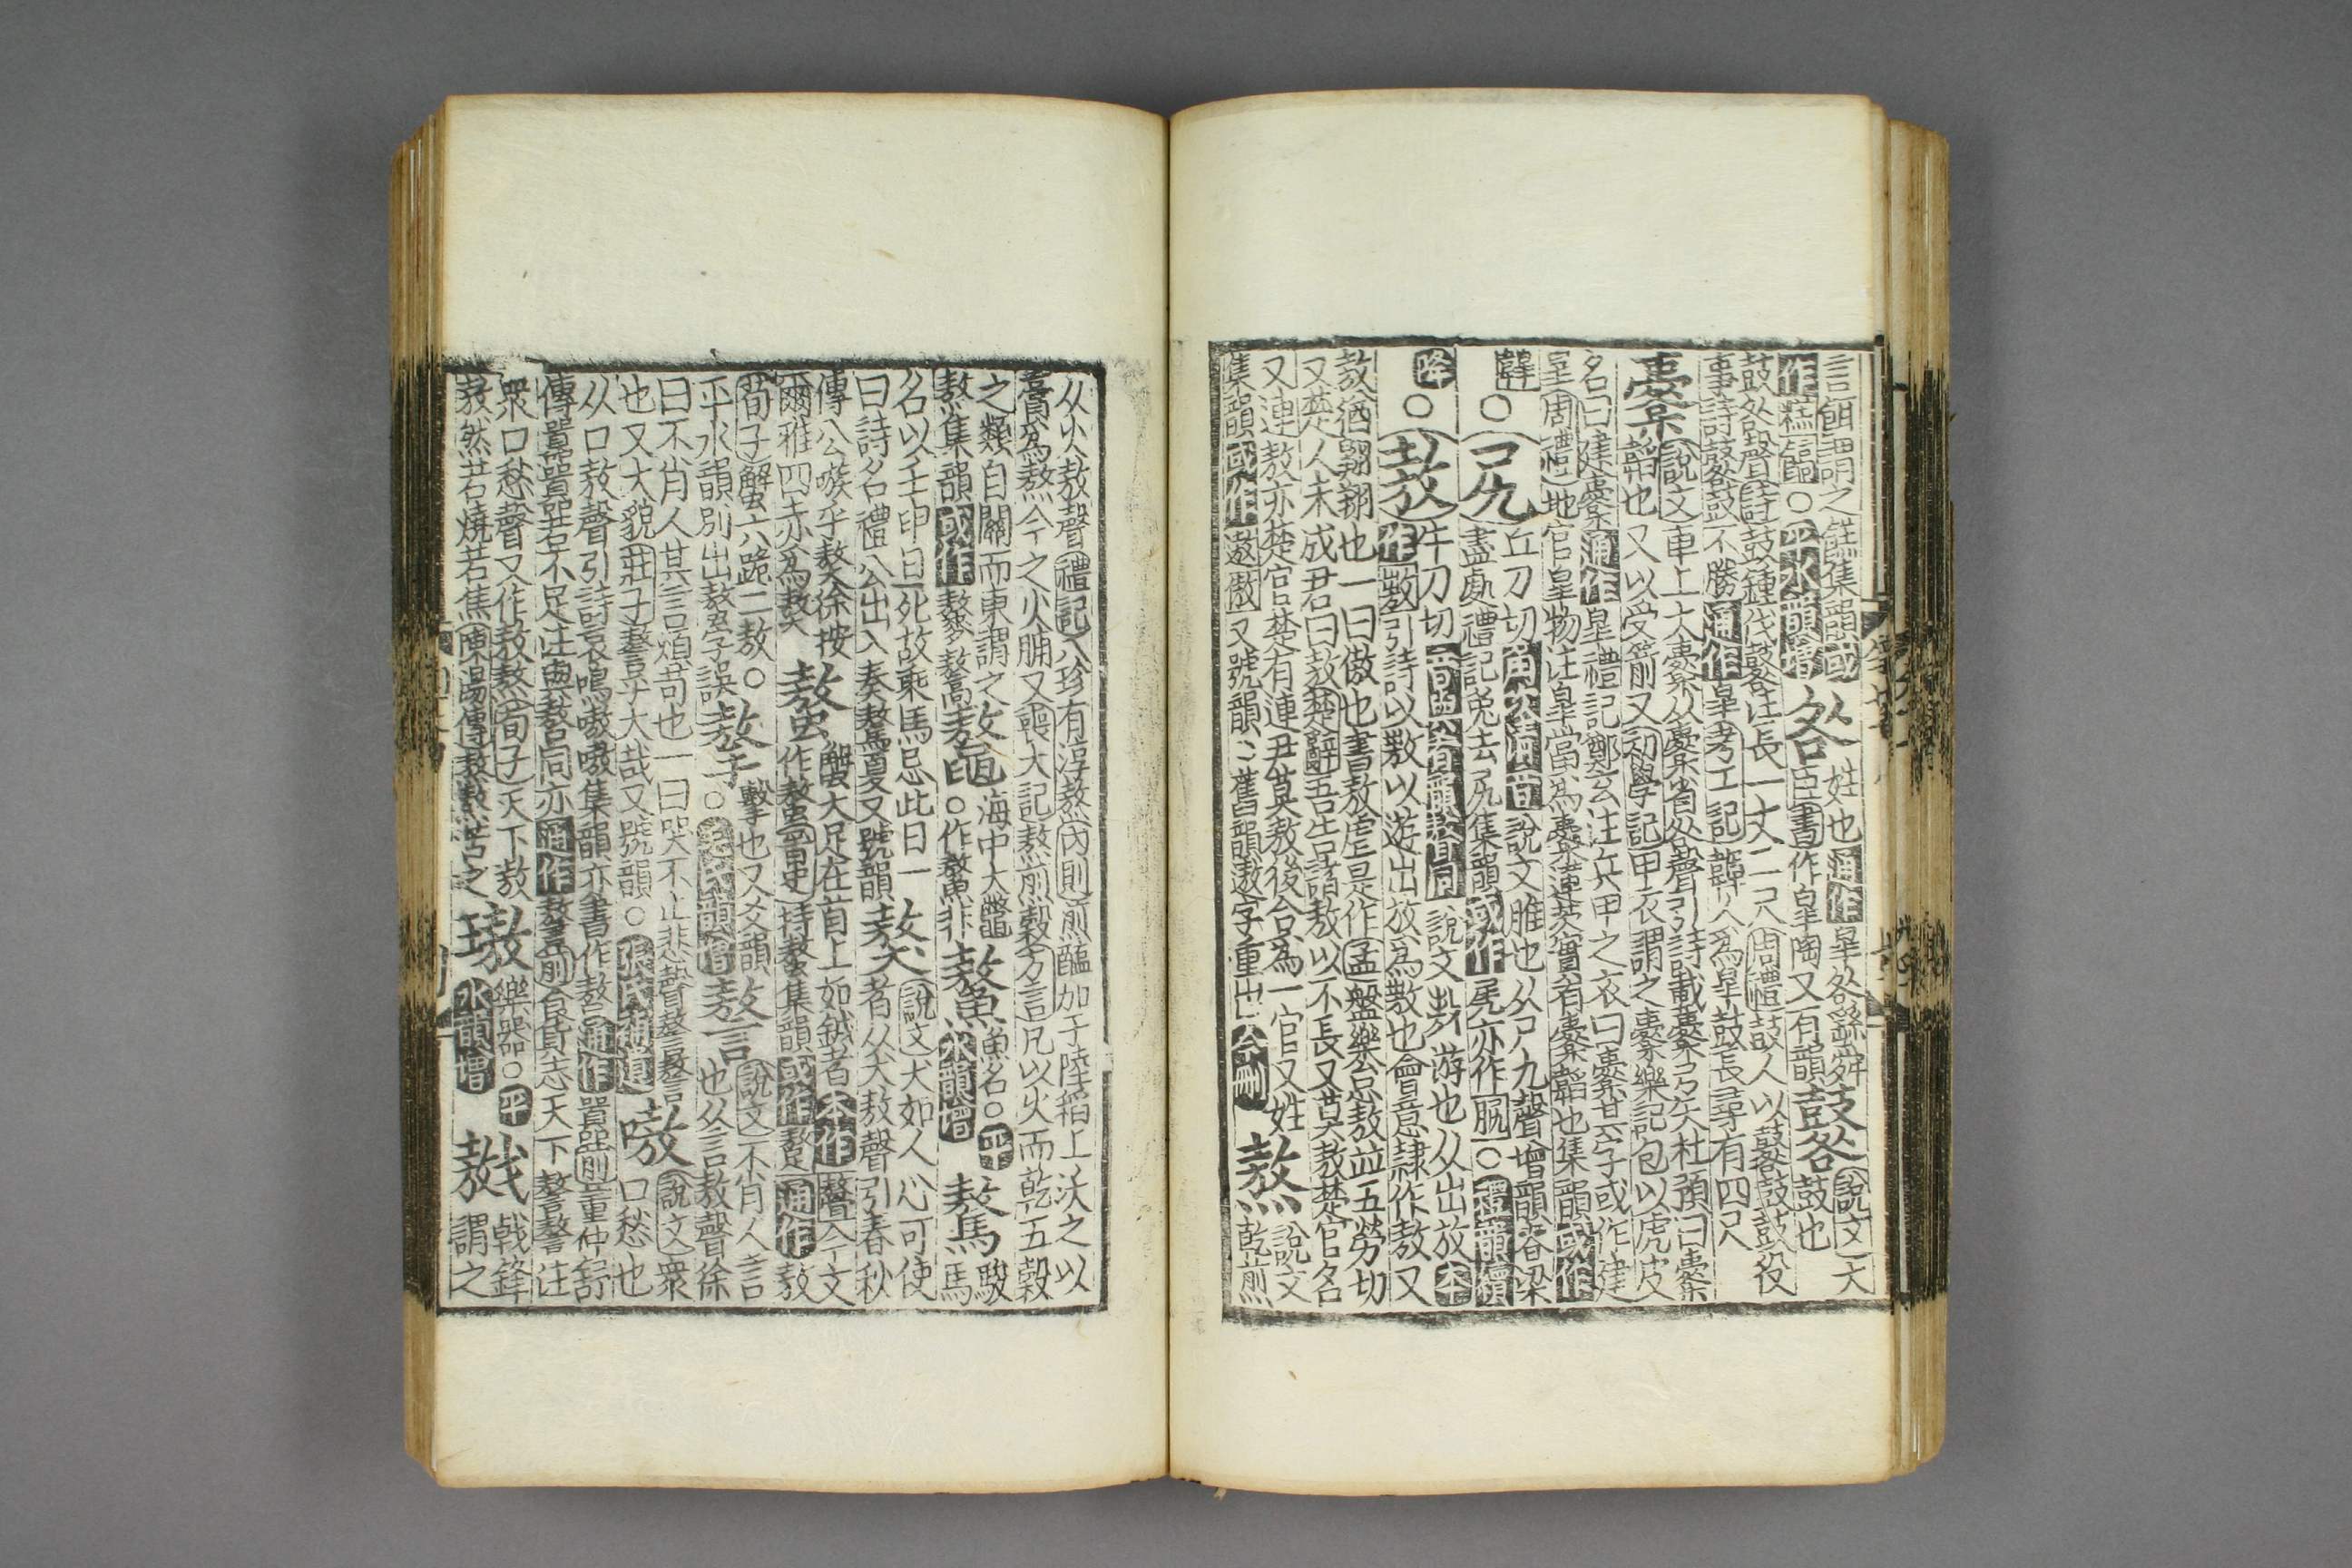 言餌謂之餻集韻或
作糕䭏○平水韻增
咎
姓也通作皐咎繇舜
臣書作皐陶又有韻
鼛
說文大
鼓也
鼓咎聲詩鼓鍾伐鼛注長一丈二尺周禮鼓人以鼛鼓鼓役
事詩鼛鼓不勝通作皐考工記韗人爲皐鼓長尋有四尺
櫜
說文車上大櫜从橐省咎聲引詩載櫜弓矢杜預曰櫜
韜也又以受箭又初學記甲衣謂之櫜樂記包以虎皮
名曰建櫜通作皐禮記鄭玄注兵甲之衣曰櫜其字或作建
皐周禮地官皐物注皐當爲櫜蓮芡實有櫜韜也集韻或作
韟○
尻
丘刀切角次清音說文脽也从尸九聲增韻脊梁
盡處禮記兔去尻集韻或作亦作○禮韻續
降○
敖
牛刀切音與爻韻聱同說文出游也从出放本
作敖引詩以敖以遊出放爲敖也會意隸作敖又
敖猶翱翔也一曰傲也書敖虐是作孟盤樂怠敖並五勞切
又楚人未成君曰敖楚辭吾告諸敖以不長又莫敖楚官名
又連敖亦楚官楚有連尹莫敖後合爲一官又姓
集韻或作遨傲又號韻〻舊韻遨字重出今刪
熬
說文
乾煎
从火敖聲禮記八珍有淳熬內則煎醢加于陸稻上沃之以
膏爲熬今之火脯又喪大記熬煎穀方言凡以火而乾五穀
之類自關而東謂之
熬集韻或作
鼇
海中大鼈
○作鰲非
鰲
魚名○平
水韻增
驁
駿
馬
名以壬申日死故乘馬忌此日一
曰詩名禮八公出入奏驁夏又號韻
獒
說文犬如人心可使
者从犬敖聲引春秋
傳公嗾乎獒徐按
爾雅四赤爲獒
螯
蟹大足在首上如鉞者本作今文
作螯晉史持螯集韻或作通作敖
荀子蟹六跪二敖○
平水韻別出敖字誤
摮
擊也又爻韻
○毛氏韻增
謷
說文不肖人言
也从言敖聲徐
曰不肖人其言煩苛也一曰哭不止悲聲謷謷
也又大貌莊子謷乎大哉又號韻○張氏補遺
嗷
說文衆
口愁也
从口敖聲引詩哀鳴嗷嗷集韻亦書作謷通作囂前董仲舒
傳囂囂苦不足注與謷同亦通作謷前食貨志天下謷謷注
衆口愁聲又作敖熬荀子天下敖
敖然若燒若焦陳湯傳熬熬苦之
璈
樂器○平
水韻增
戟鋒
謂之